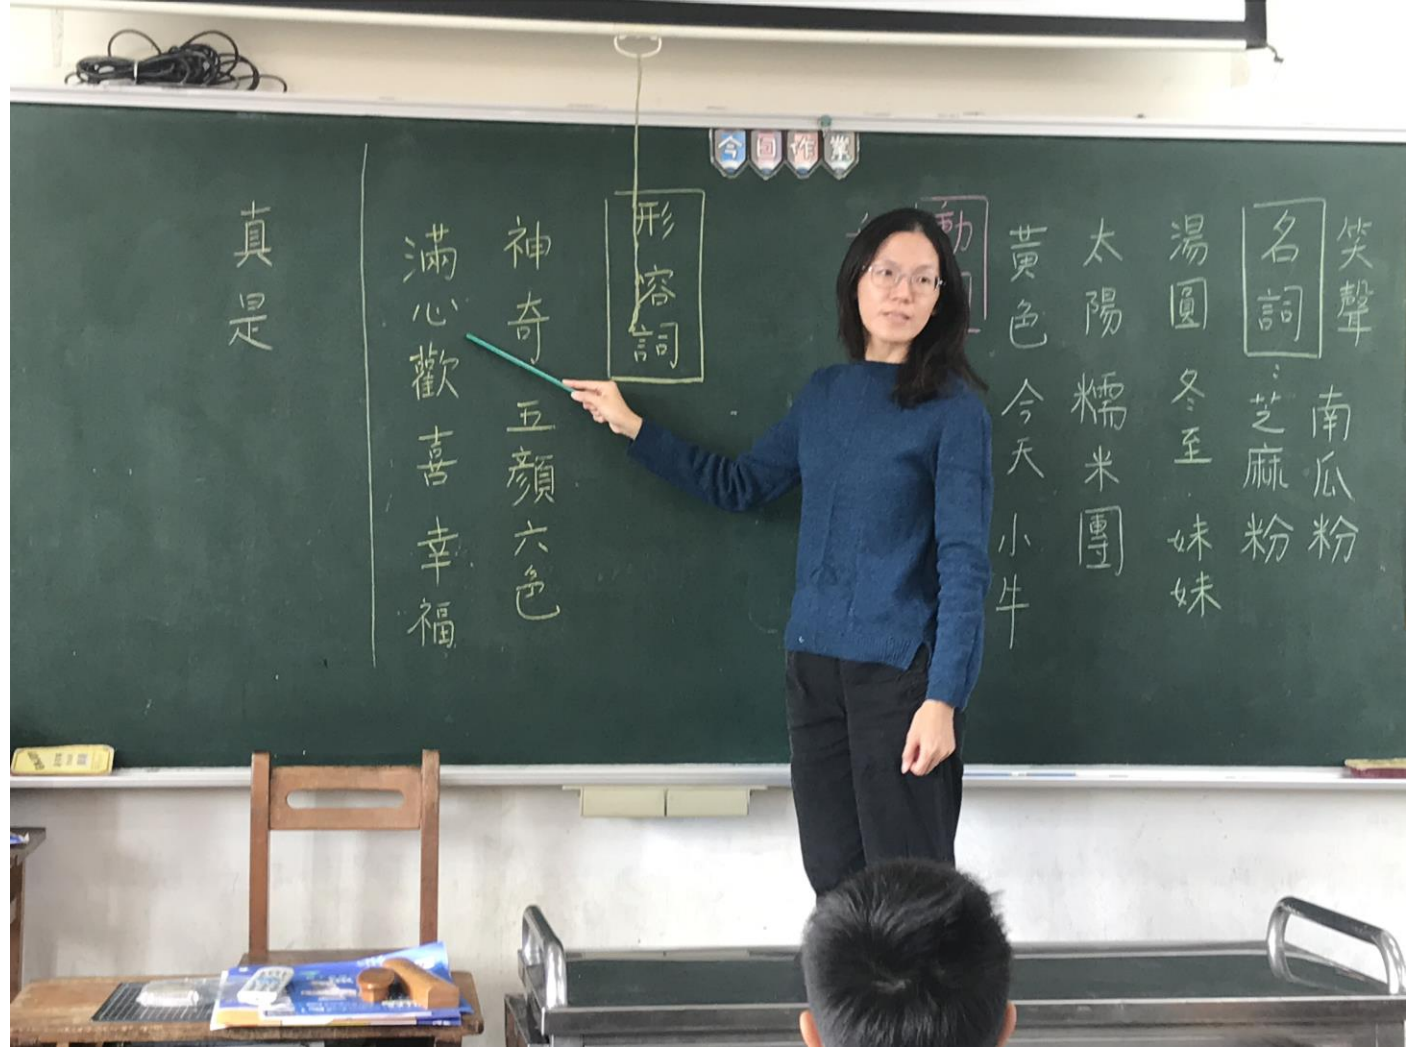 今回作業
笑聲 南瓜粉
名詞：芝麻粉
湯圓 冬至 妹妹
太陽 糯米團
黃色 今天 小牛
動
形容詞
神奇 五顏六色
滿心歡喜 幸福
真是